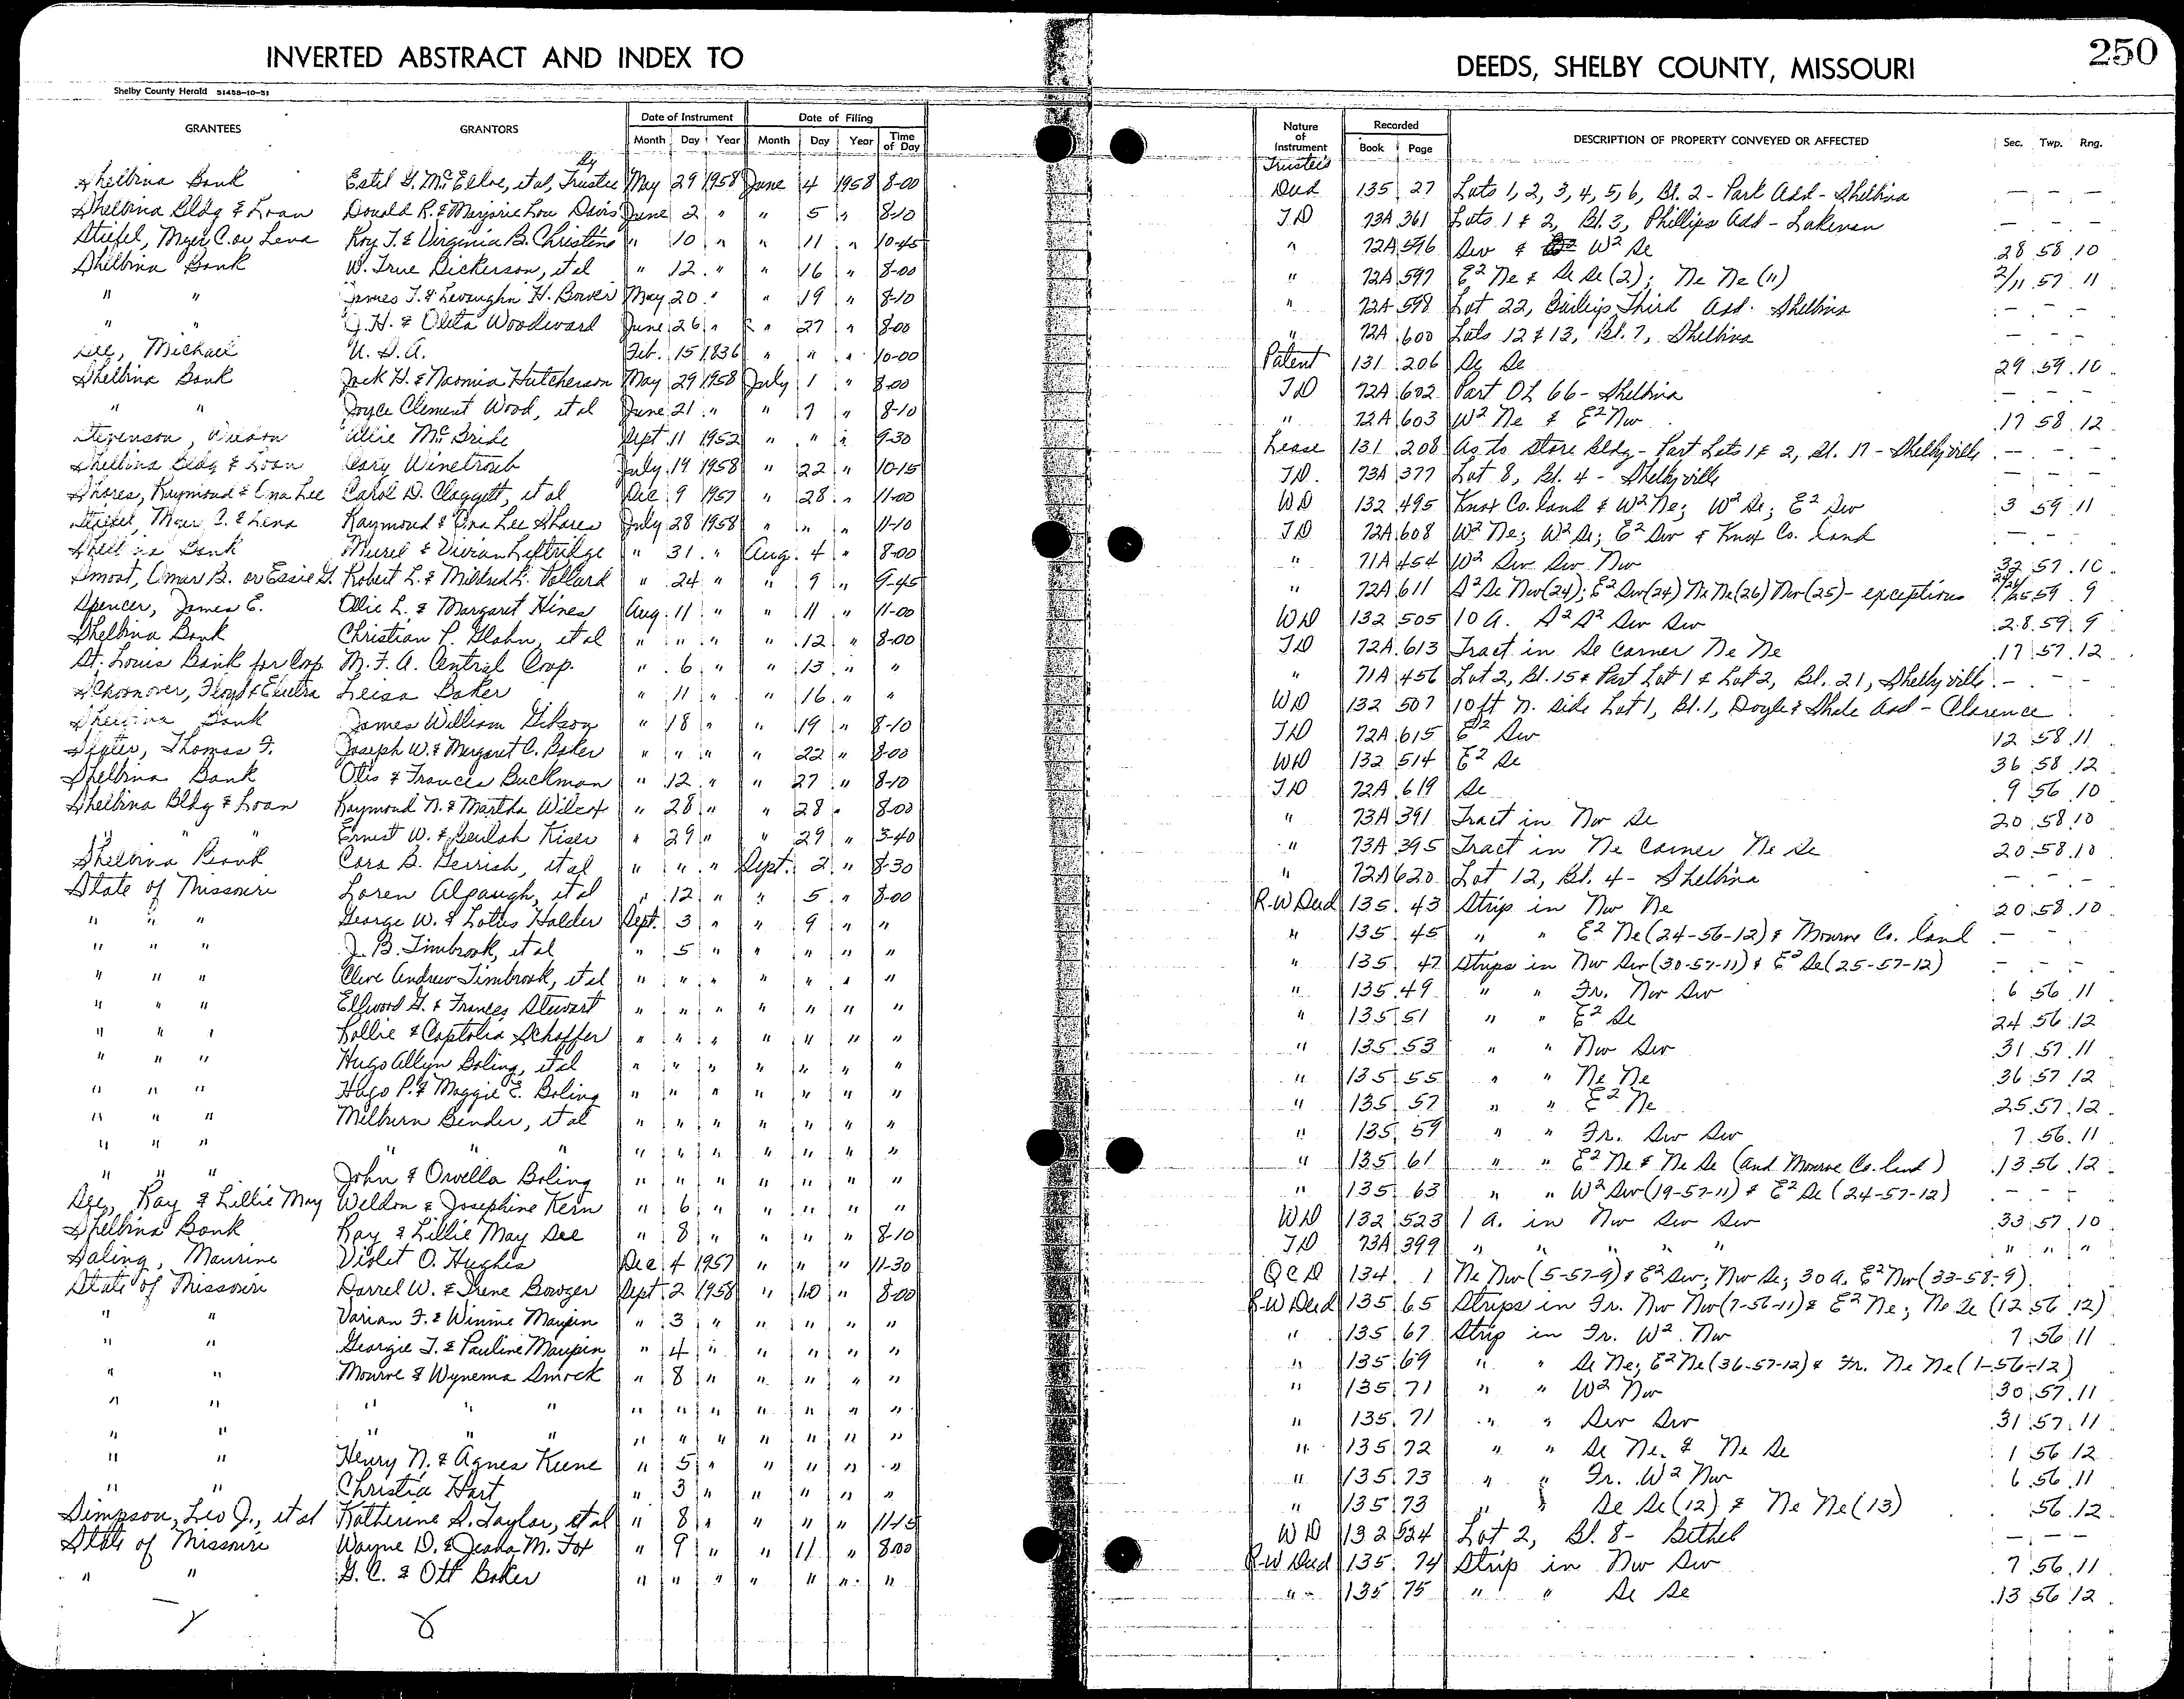 INVERTED ABSTRACT AND INDEX TO
Shelby County Herald 51458-10-51
GRANTEES GRANTORS Date of Instrument Date of Filing
Month Day Year Month Day Year Time of Day
By
Shelbina Bank Estil G. McElroe, et al, Trustee May 29 1958 June 4 1958 8-00
Shelbina Bldg & Loan Donald R. & Marjorie Lou Davis June 2 " " 5 " 8-10
Stiefel, Myer C. or Lena Roy T. & Virginia B. Christine " 10 " " 11 " 10-45
Shelbina Bank W. True Dickerson, et al " 12 " " 16 " 8-00
" " James T. & Levaughn H. Bower May 20 " " 19 " 8-10
" " J. H. & Oleta Woodward June 26 " " 27 " 8-00
Lee, Michael U. S. A. Feb. 15 1836 " " " 10-00
Shelbina Bank Jack H. & Naomia Hutcherson May 29 1958 July 1 " 8-00
" " Joyce Clement Wood, et al June 21 " " 7 " 8-10
Stevenson, Wilson Allie McBride Sept 11 1952 " " " 9-30
Shelbina Bldg & Loan Cary Winetroub July 19 1958 " 22 " 10-15
Shores, Raymond & Ona Lee Carol D. Claggett, et al Dec 9 1957 " 28 " 11-00
Stiefel, Myer C. & Lena Raymond & Ona Lee Shores July 28 1958 " " " 11-10
Shelbina Bank Murel & Vivian Leftridge " 31 " Aug. 4 " 8-00
Smoot, Omar B. or Essie G. Robert L. & Mildred L. Pollard " 24 " " 9 " 9-45
Spencer, James E. Ollie L. & Margaret Hines Aug. 11 " " 11 " 11-00
Shelbina Bank Christian P. Glahn, et al " " " " 12 " 8-00
St. Louis Bank for Coop M. F. A. Central Coop. " 6 " " 13 " "
Schoonover, Floyd & Electra Leisa Baker " 11 " " 16 " "
Shelbina Bank James William Gibson " 18 " " 19 " 8-10
Thomas F. Joseph W. & Margaret C. Baker " " " " 22 " 8-00
Shelbina Bank Otis & Frances Buckman " 12 " " 27 " 8-10
Shelbina Bldg & Loan Raymond N. & Martha Wilcox " 28 " " 28 " 8-00
" " " Ernest W. & Beulah Kiser " 29 " " 29 " 3-40
Shelbina Bank Cora B. Gerrish, et al " " " Sept. 2 " 8-30
State of Missouri Loren Alpaugh, et al " 12 " " 5 " 8-00
" " " George W. & Lottis Holder Sept. 3 " " 9 " "
" " " J. B. Timbrook, et al " 5 " " " " "
" " " Clive Andrew Timbrook, et al " " " " " " "
" " " Ellwood G. & Frances Stewart " " " " " " "
" " " Rollie & Captolia Schaffer " " " " " " "
" " " Hugo Allyn Boling, et al " " " " " " "
" " " Hugo P. & Maggie E. Boling " " " " " " "
" " " Milburn Bender, et al " " " " " " "
" " " " " " " " " " " " "
" " " John & Orvella Boling " " " " " " "
See, Ray & Lillie May Weldon & Josephine Kern " 6 " " " " "
Shelbina Bank Ray & Lillie May See " 8 " " " " 8-10
Saling, Maurine Violet O. Hughes Dec 4 1957 " " " 11-30
State of Missouri Darrel W. & Irene Bowzer Sept 2 1958 " 10 " 8-00
" " Varian F. & Winnie Maupin " 3 " " " " "
" " Georgie T. & Pauline Maupin " 4 " " " " "
" " Monroe & Wynema Smock " 8 " " " " "
" " " " " " " " " " " "
" " " " " " " " " " " "
" " Henry N. & Agnes Keene " 5 " " " " "
" " Christia Hart " 3 " " " " "
Simpson, Leo J., et al Katherine S. Taylor, et al " 8 " " " " 11-15
State of Missouri Wayne D. & Jeana M. Fox " 9 " " 11 " 8-00
" " G. C. & Ott Baker " " " " " " "
DEEDS, SHELBY COUNTY, MISSOURI
250
Nature of Instrument Recorded DESCRIPTION OF PROPERTY CONVEYED OR AFFECTED Sec. Twp. Rng.
Book Page
Trustee's
Deed 135 27 Lots 1, 2, 3, 4, 5, 6, Bl. 2 - Park Add - Shelbina - - -
TD 73A 361 Lots 1 & 2, Bl. 3, Phillips Add - Lakenan - - -
" 72A 596 Sw & W² Se 28 58 10
" 72A 597 E² Ne & Se Se (2); Ne Ne (11) 2/11 57 11
" 72A 598 Lot 22, Baileys Third Add. Shelbina - - -
" 72A 600 Lots 12 & 13, Bl. 7, Shelbina - - -
Patent 131 206 Se Se 29 59 10
TD 72A 602 Part OL 66 - Shelbina - - -
" 72A 603 W² Ne & E² Nw 17 58 12
Lease 131 208 As to store Bldg - Part Lots 1 & 2, Bl. 17 - Shelbyville - - -
TD. 73A 377 Lot 8, Bl. 4 - Shelbyville - - -
WD 132 495 Knox Co. land & W² Ne; W² Se; E² Sw 3 59 11
TD 72A 608 W² Ne; W² Se; E² Sw & Knox Co. land - - -
" 71A 454 W² Sw Sw Nw 32 57 10
" 72A 611 S² Se Nw (24); E² Sw (24) Ne Ne (26) Nw (25) - exceptions 59 9
WD 132 505 10 A. S² S² Sw Sw 28 59 9
TD 72A 613 Tract in Se Corner Ne Ne 17 57 12
" 71A 456 Lot 2, Bl. 15 & Part Lot 1 & Lot 2, Bl. 21, Shelbyville - -
WD 132 507 10 ft N. side Lot 1, Bl. 1, Doyle & Shale Add - Clarence
TD 72A 615 E² Sw 12 58 11
WD 132 514 E² Se 36 58 12
TD 72A 619 Se 9 56 10
" 73A 391 Tract in Nw Se 20 58 10
" 73A 395 Tract in Ne Corner Ne Se 20 58 10
" 72A 620 Lot 12, Bl. 4 - Shelbina - - -
R-W Deed 135 43 Strip in Nw Ne 20 58 10
" 135 45 " " E² Ne (24-56-12) & Monroe Co. land - -
" 135 47 Strips in Nw Sw (30-57-11) & E² Se (25-57-12) - - -
" 135 49 " " Fr. Nw Sw 6 56 11
" 135 51 " " E² Se 24 56 12
" 135 53 " " Nw Sw 31 57 11
" 135 55 " " Ne Ne 36 57 12
" 135 57 " " E² Ne 25 57 12
" 135 59 " " Fr. Sw Sw 7 56 11
" 135 61 " " E² Ne & Ne Se (and Monroe Co. land) 13 56 12
" 135 63 " " W² Sw (19-57-11) & E² Se (24-57-12) - - -
WD 132 523 1 a. in Nw Sw Sw 33 57 10
TD 73A 399 " " " " " " " "
QCD 134 1 Ne Nw (5-57-9) & E² Sw; Nw Se; 30 a. E² Nw (33-58-9)
R-W Deed 135 65 Strips in Fr. Nw Nw (7-56-11) & E² Ne; Ne Se (12 56 12)
" 135 67 Strip in Fr. W² Nw 7 56 11
" 135 69 " " Se Ne; E² Ne (36-57-12) & Fr. Ne Ne (1-56-12)
" 135 71 " " W² Nw 30 57 11
" 135 71 " " Sw Sw 31 57 11
" 135 72 " " Se Ne & Ne Se 1 56 12
" 135 73 " " Fr. W² Nw 6 56 11
" 135 73 " " Se Se (12) & Ne Ne (13) 56 12
WD 132 524 Lot 2, Bl. 8 - Bethel - - -
R-W Deed 135 74 Strip in Nw Sw 7 56 11
" 135 75 " " Se Se 13 56 12